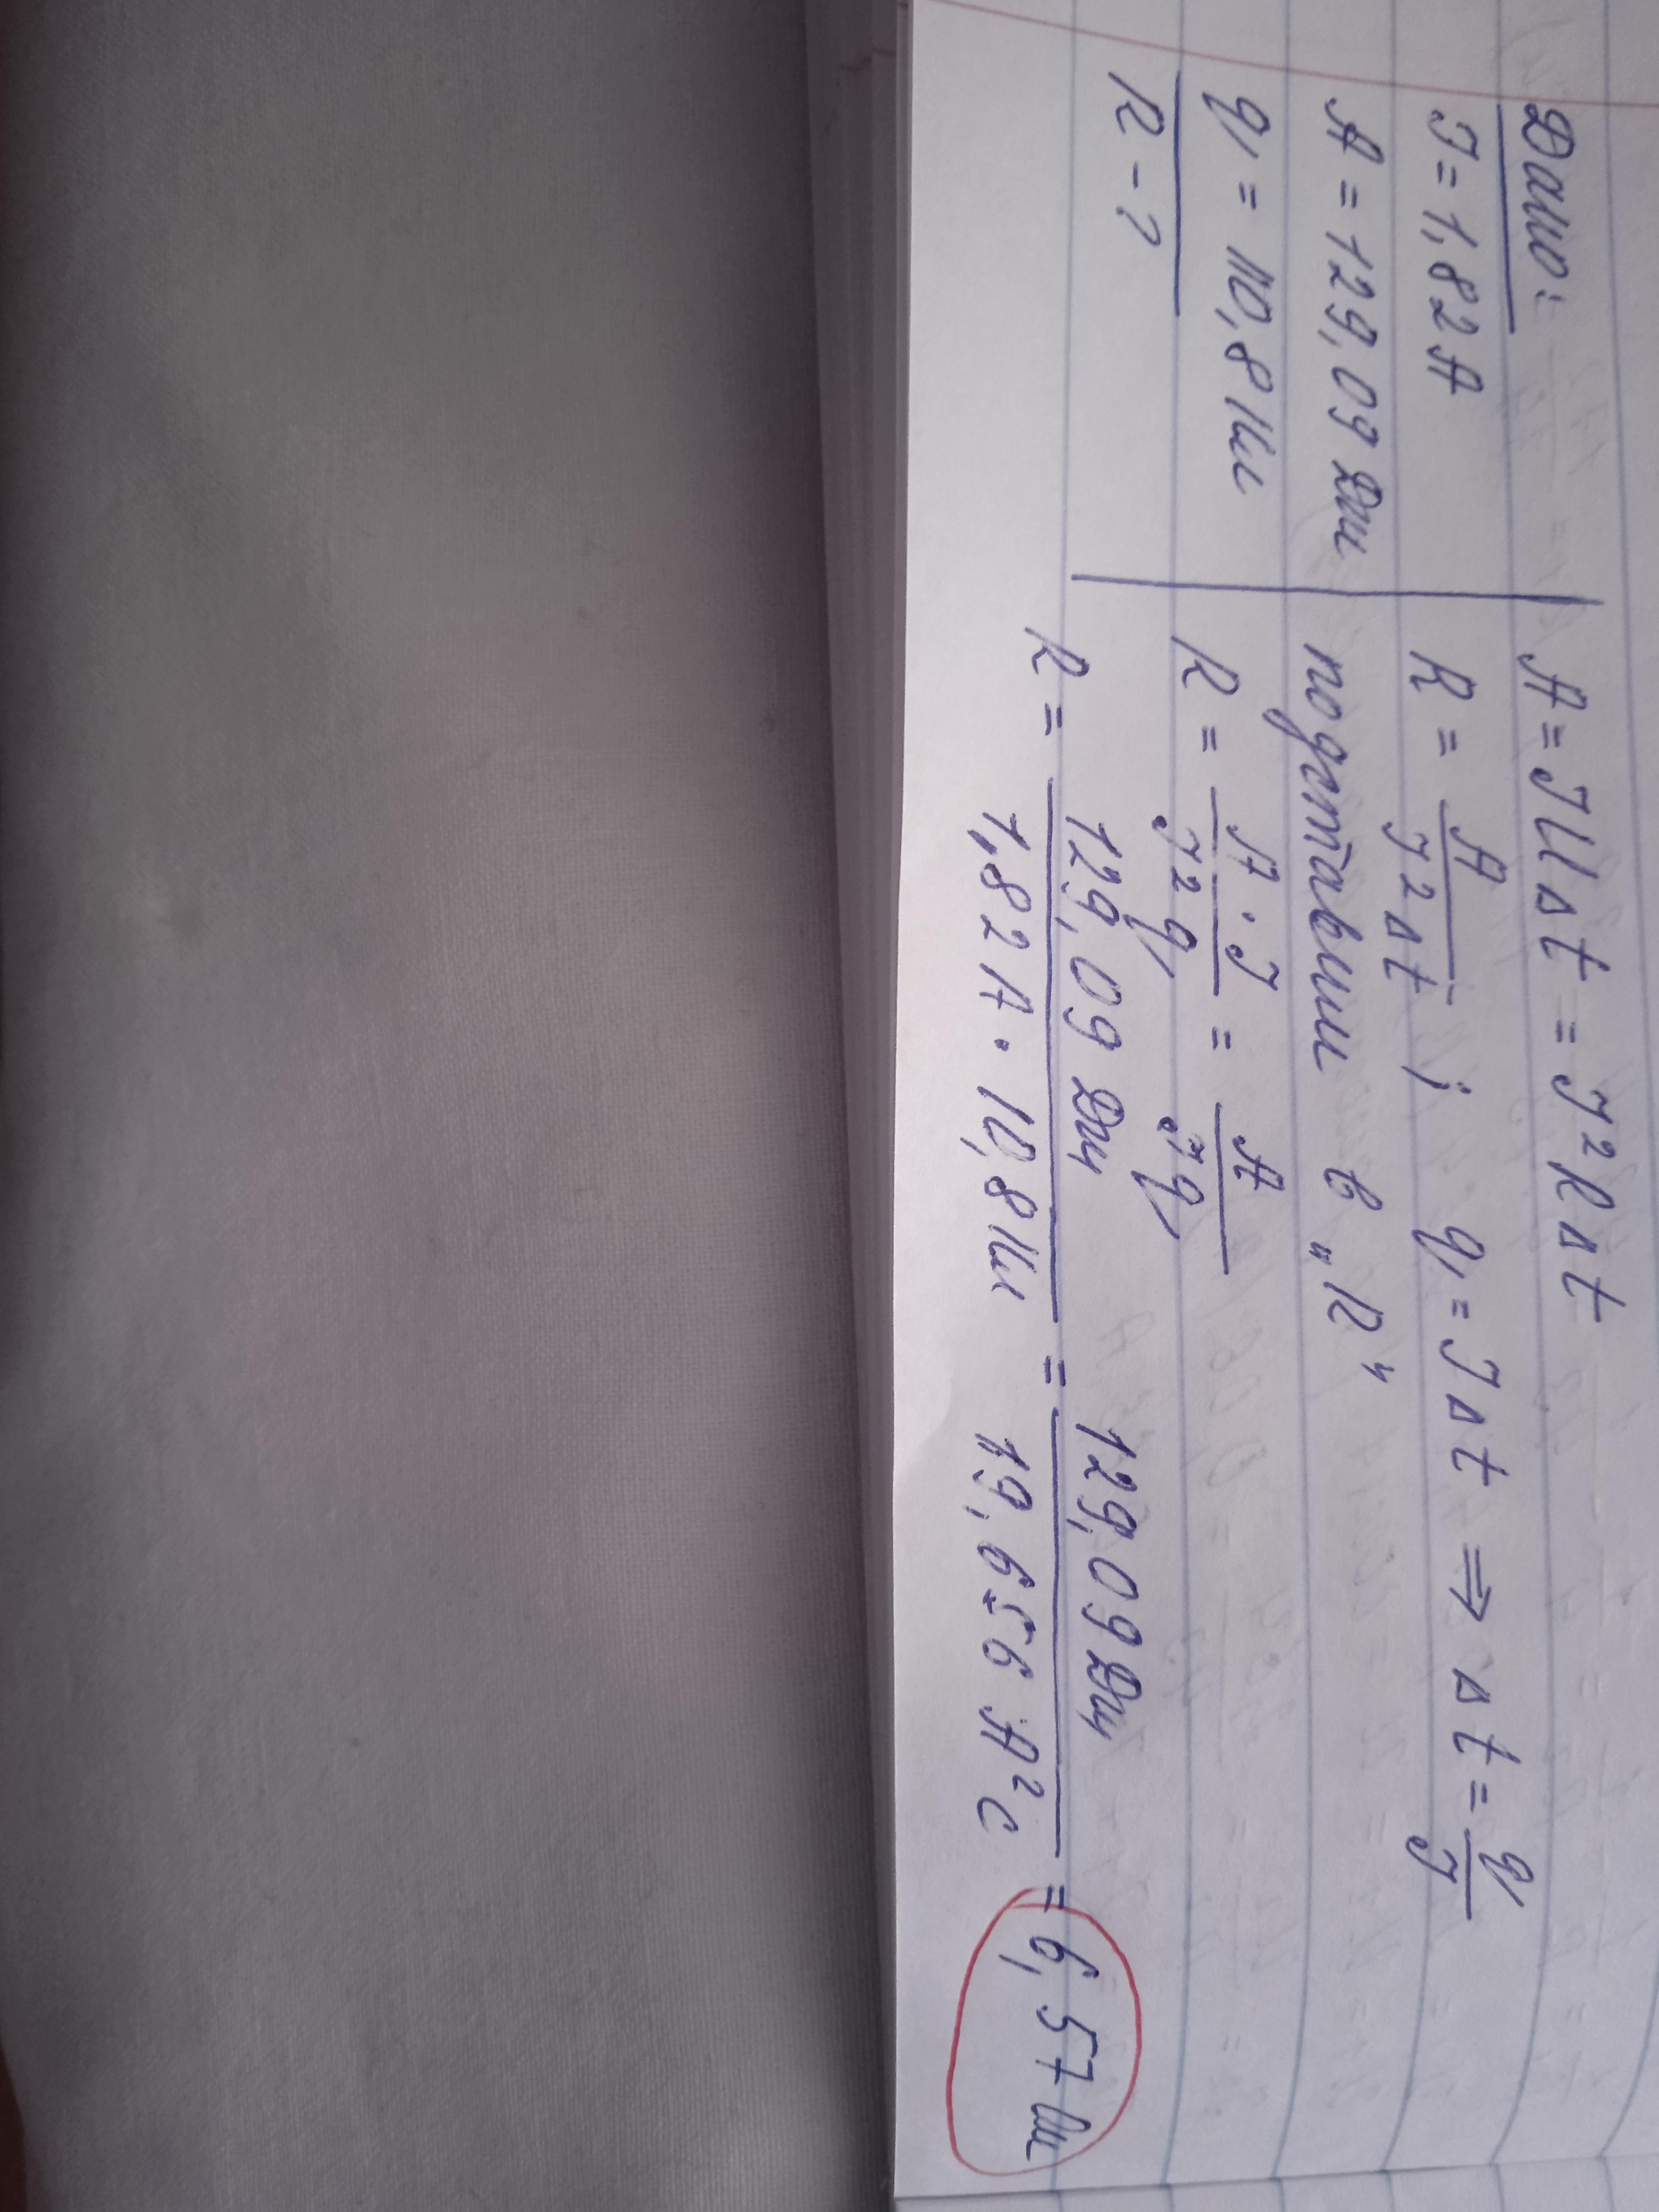 Дано:
I = 1,82 А
A = 129,09 Дж
q = 10,8 Кл
R - ?
A = IUΔt = I²RΔt
R = A / I²Δt ; q = IΔt ⇒ Δt = q / I
подставим в „R"
R = A · I / I²q = A / Iq
R = 129,09 Дж / 1,82 А · 10,8 Кл = 129,09 Дж / 19,656 А²с = 6,57 Ом